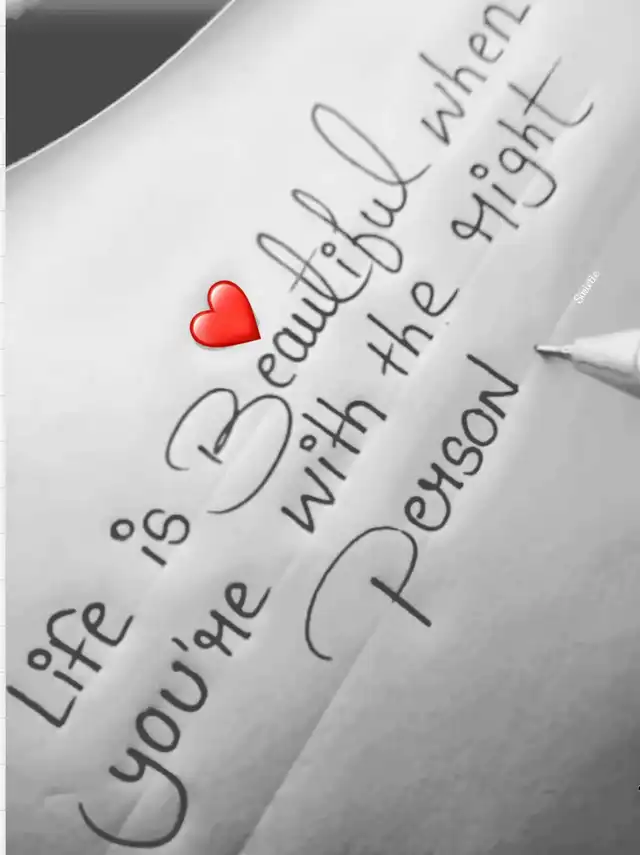 Life is Beautiful when
you're with the right
Person